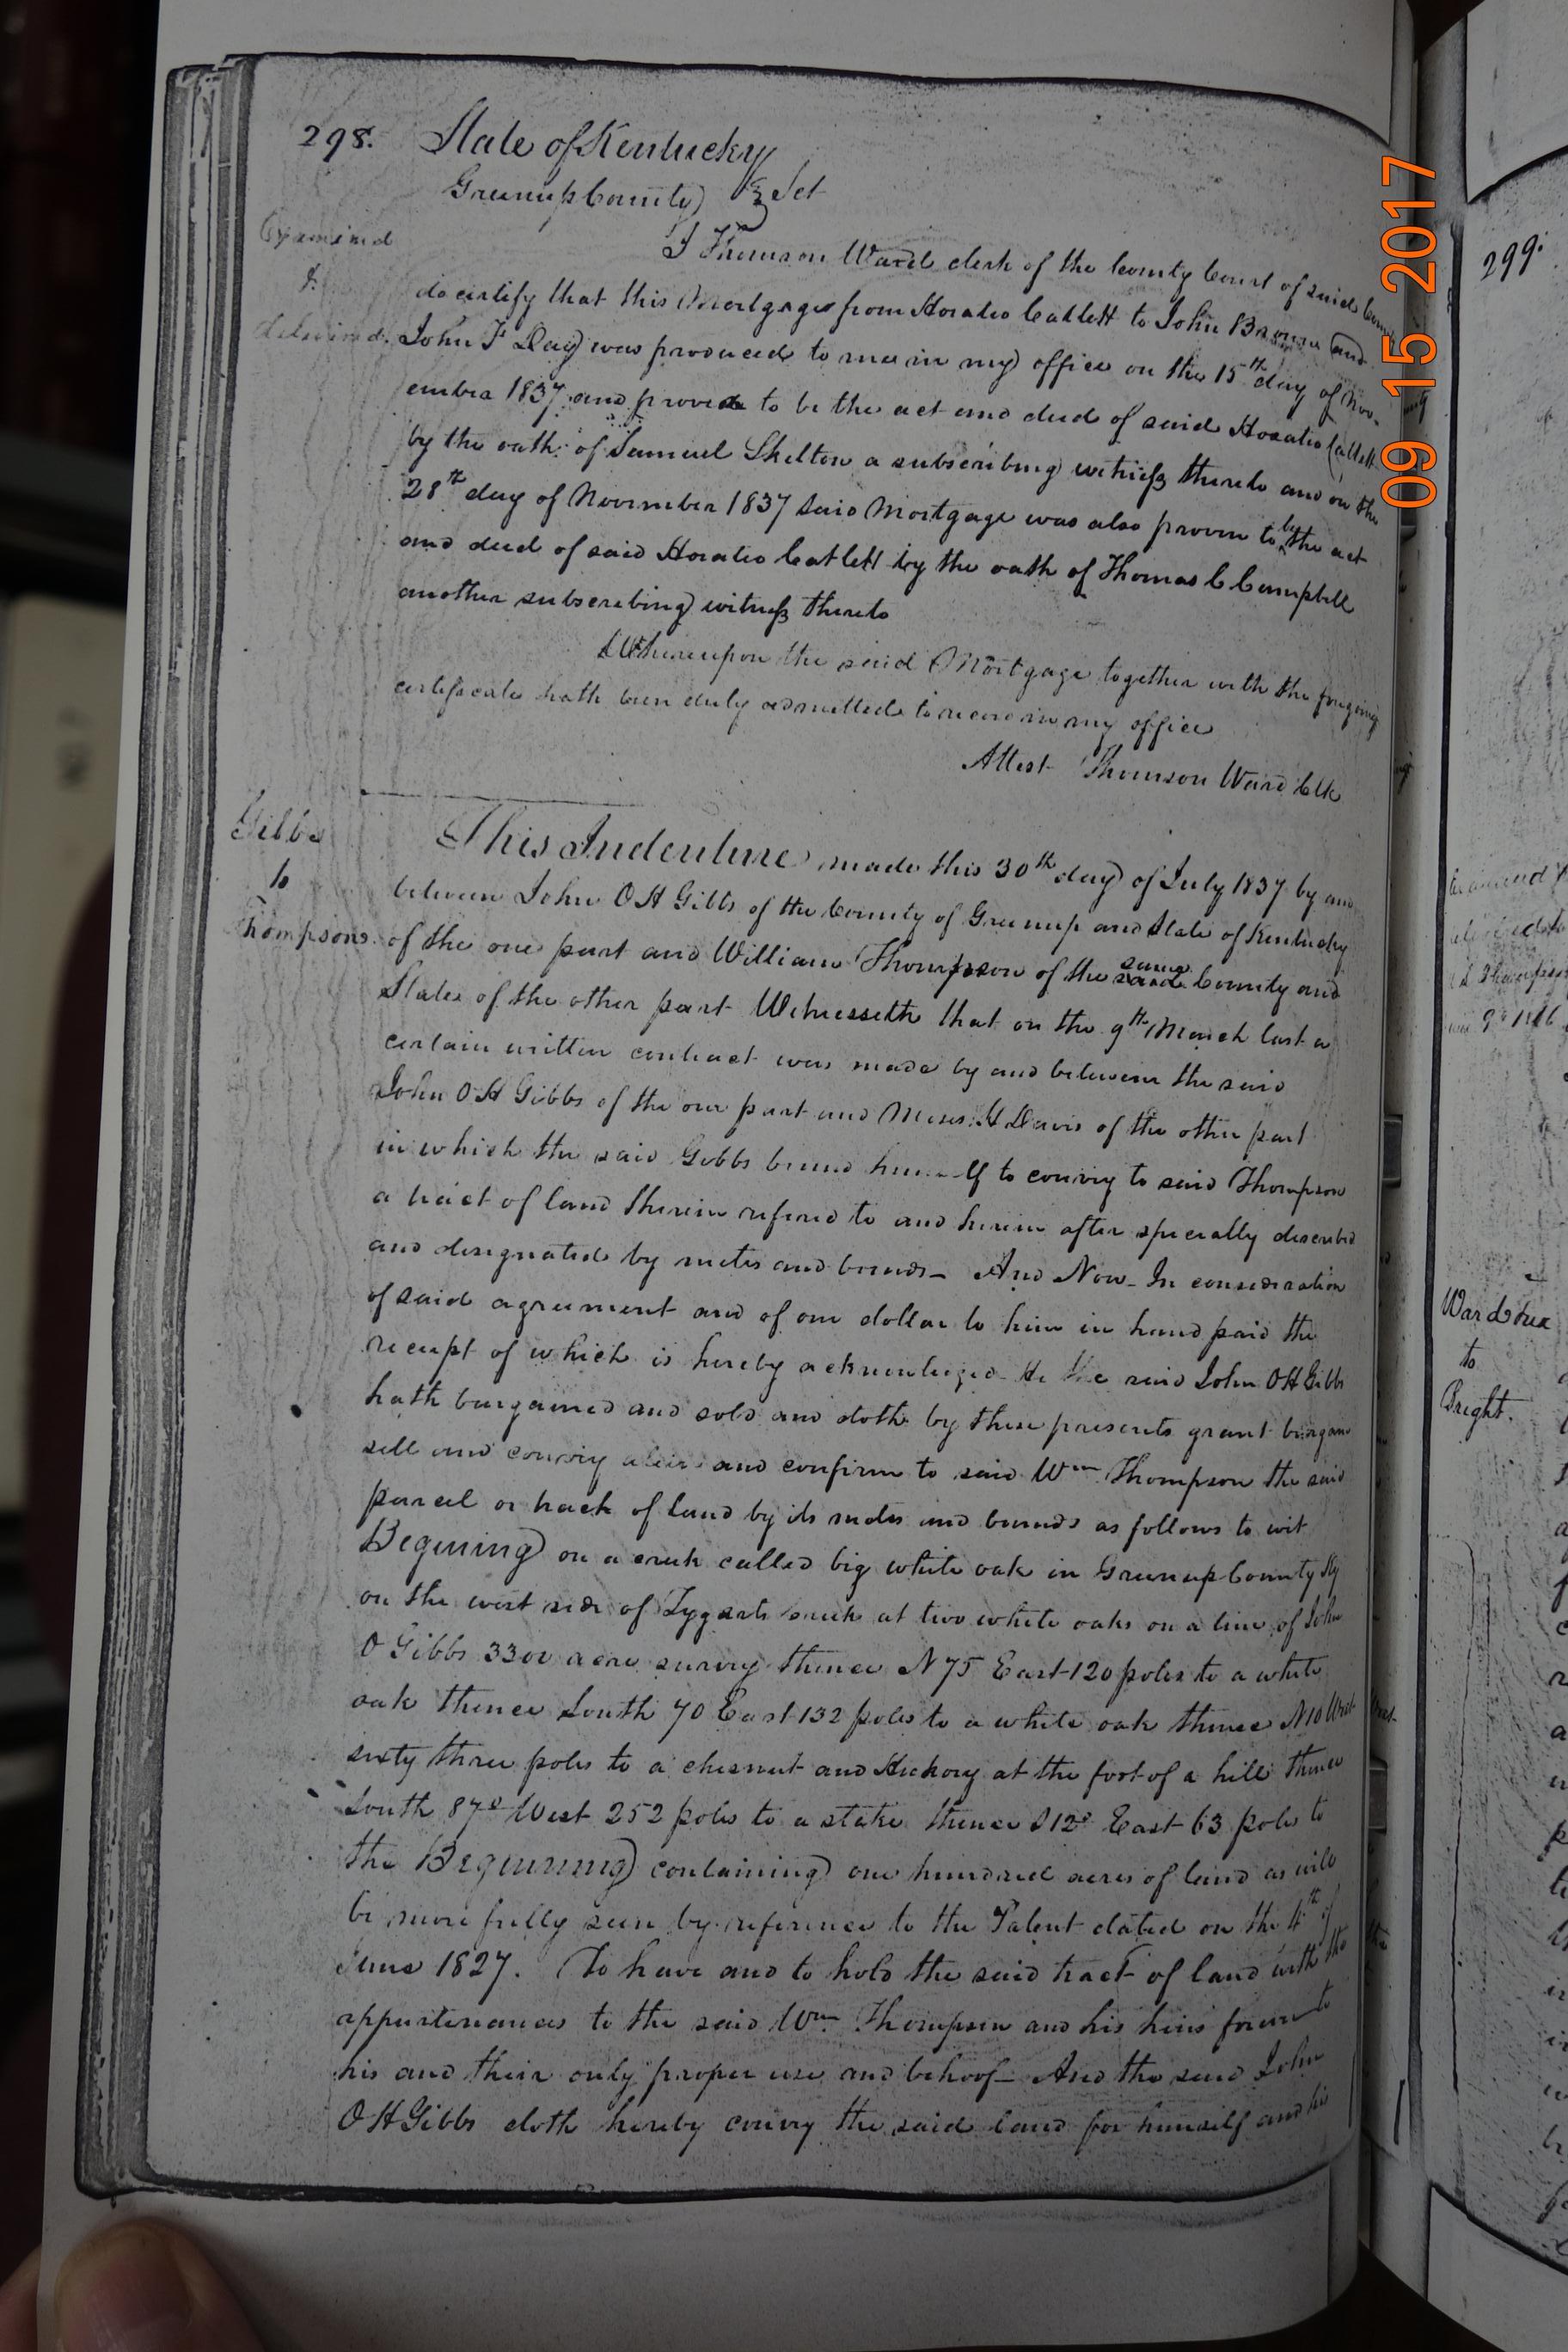 298. State of Kentucky
Greenup County } Sct
Examined
&
delivered.
I Thomson Ward clerk of the County Court of said County
do certify that this Mortgage from Horatio Catlett to John Brown and
John F Day was produced to me in my office on the 15th day of Nov-
ember 1837 and proven to be the act and deed of said Horatio Catlett
by the oath of Samuel Shelton a subscribing witness thereto and on the
28th day of November 1837 said Mortgage was also proven to be the act
and deed of said Horatio Catlett by the oath of Thomas C Campbell
another subscribing witness thereto
Whereupon the said Mortgage together with the foregoing
certificate hath been duly admitted to record in my office
Attest Thomson Ward Clk
Gibbs
to
Thompson.
This Indenture made this 30th day of July 1837 by and
between John O H Gibbs of the County of Greenup and State of Kentucky
of the one part and William Thompson of the same County and
State of the other part Witnesseth that on the 9th March last a
certain written contract was made by and between the said
John O H Gibbs of the one part and Moses H Davis of the other part
in which the said Gibbs bound himself to convey to said Thompson
a tract of land therein refered to and herein after specially described
and designated by metes and bounds - And Now - In consideration
of said agreement and of one dollar to him in hand paid the
receipt of which is hereby acknowledged He the said John O H Gibbs
hath bargained and sold and doth by these presents grant bargain
sell and convey alien and confirm to said Wm Thompson the said
parcel or track of land by its metes and bounds as follows to wit
Begining on a creek called big white oak in Greenup County Ky
on the west side of Tygarts creek at two white oaks on a line of John
O Gibbs 3300 acre survey thence N 75 East 120 poles to a white
oak thence South 70 East 132 poles to a white oak thence N 10 West
sixty three poles to a chesnut and Hickory at the foot of a hill thence
South 87° West 252 poles to a stake thence S 12° East 63 poles to
the Begining containing one hundred acres of land as will
be more fully seen by reference to the Patent dated on the 4th of
June 1827. To have and to hold the said tract of land with the
appurtenances to the said Wm Thompson and his heirs forever to
his and their only proper use and behoof - And the said John
O H Gibbs doth hereby convey the said land for himself and his
09 15 2017
299.
Examined &
Ward &ux
to
Bright.